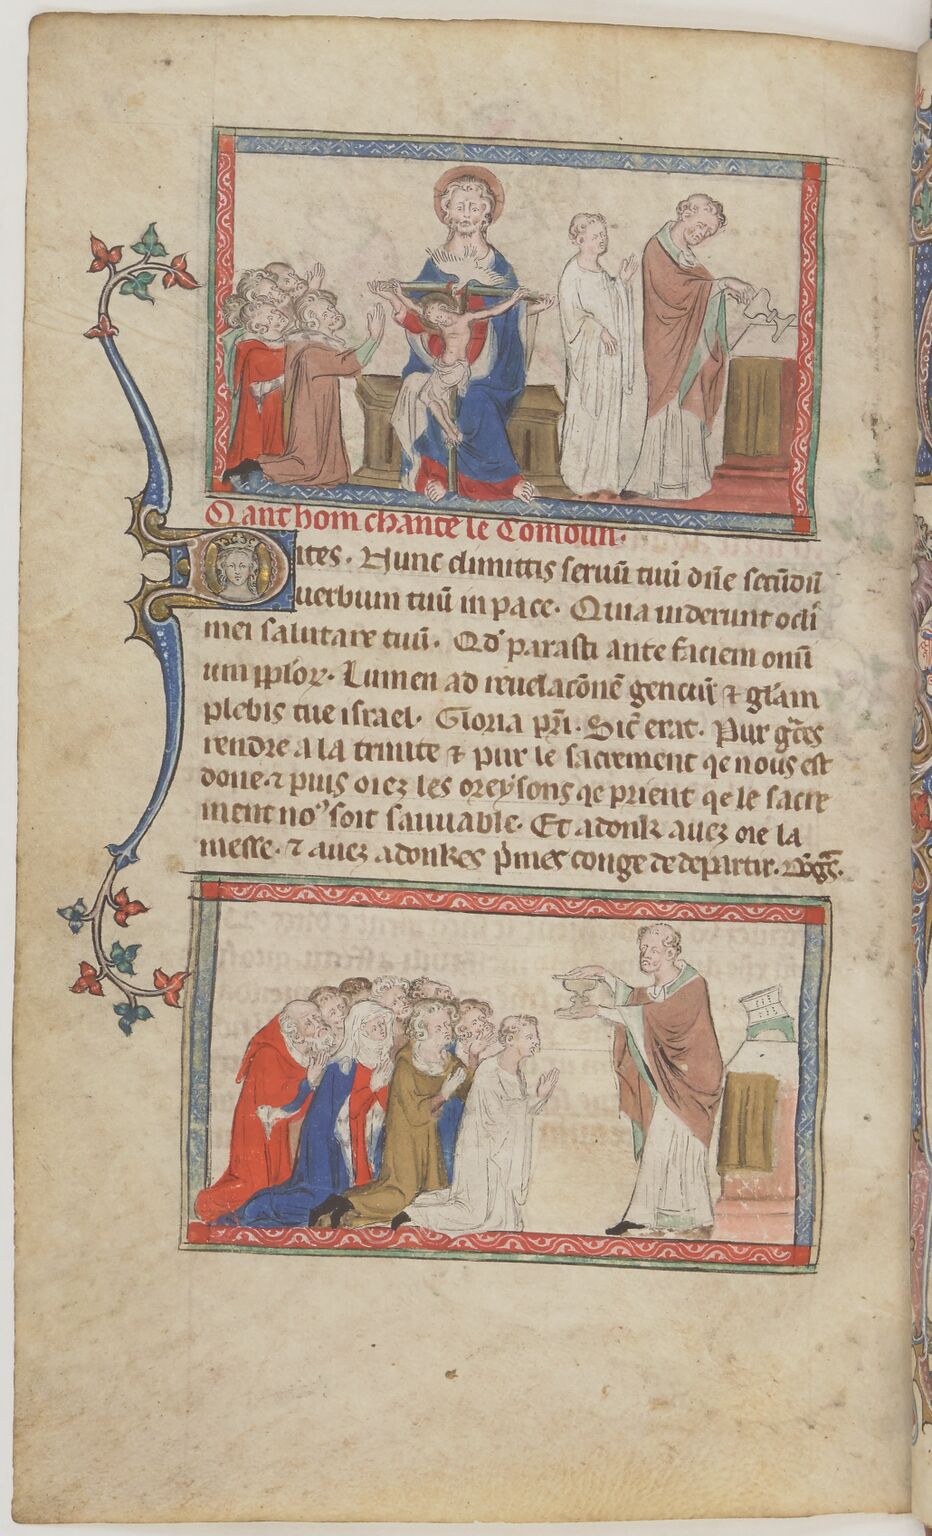 Qant hom chante le Comoun.
Dites. Nunc dimittis seruū tuū dn̄e scd̄m
uerbum tuū in pace. Quia uiderunt oc̄li
mei salutare tuū. Qd̄ parasti ante faciem om̄i
um pp̄lor̄. Lumen ad reuelac̄onē genciū ⁊ gl̄am
plebis tue israel. Gloria pr̄i. Sic̄ erat. Pur gᵃces
rendre a la trinite ⁊ pur le sacrement qe nous est
done. ⁊ puis oiez les oreysons qe prient qe le sacre
ment noꝰ soit sauuable. Et adonk auez oie la
messe. ⁊ auez adonkes p̄mes conge de departir.